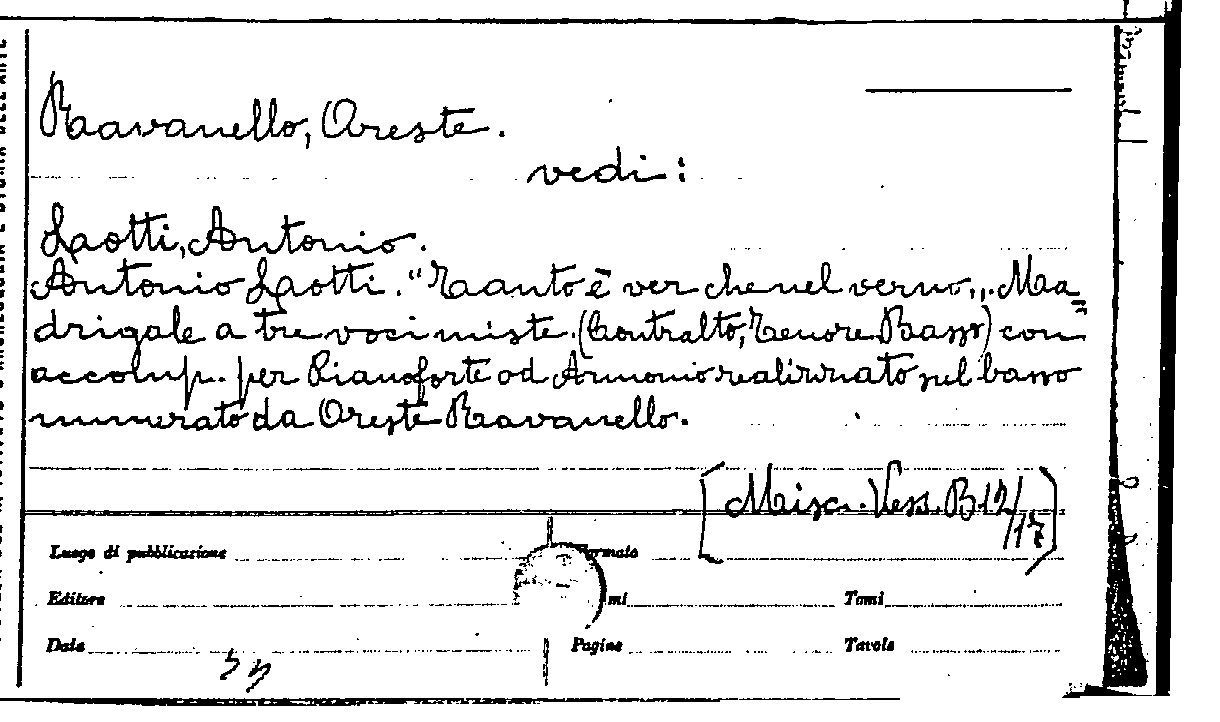 Ravanello, Oreste.
vedi:
Lotti, Antonio.
Antonio Lotti. "Tanto è ver che nel verno„. Ma=
drigale a tre voci miste (Contralto, Tenore Basso) con
accomp. per Pianoforte od Armonio realizzato sul basso
numerato da Oreste Ravanello.
[Misc. Vess. B.12/17]
Luogo di pubblicazione
Formato
Editore
Tomi
Data
Pagine
Tavole